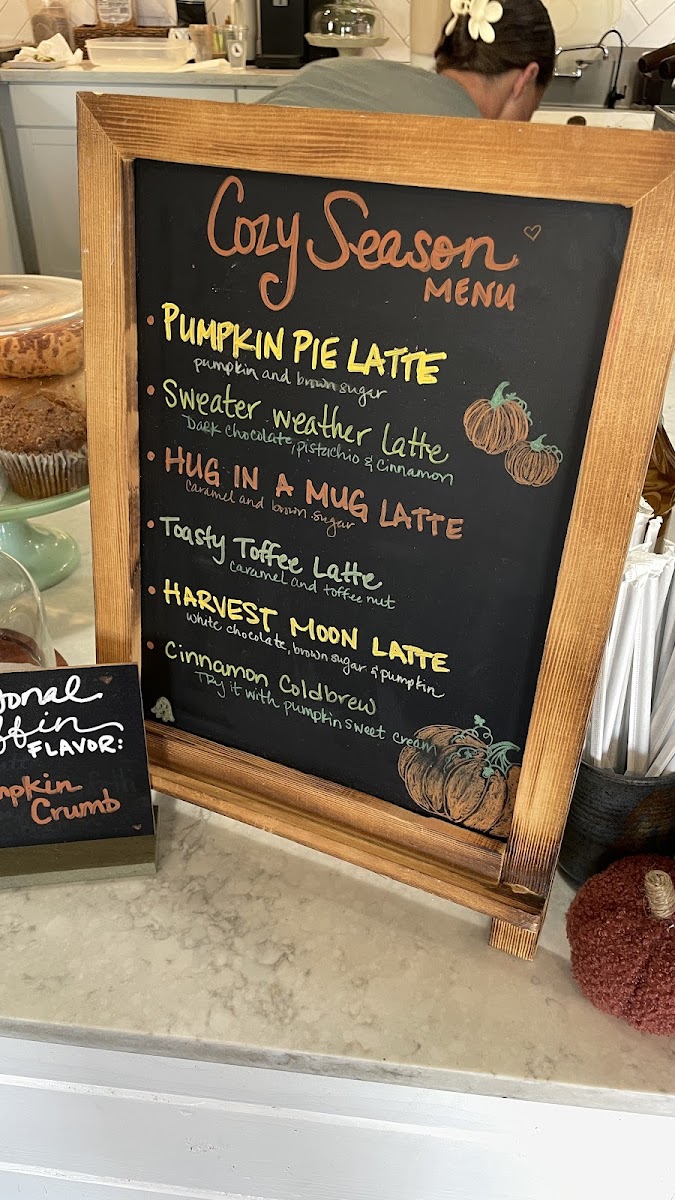 Cozy Season
MENU
PUMPKIN PIE LATTE
pumpkin and brown sugar
Sweater weather latte
Dark chocolate, pistachio & cinnamon
HUG IN A MUG LATTE
caramel and brown sugar
Toasty Toffee Latte
caramel and toffee nut
HARVEST MOON LATTE
white chocolate, brown sugar & pumpkin
Cinnamon Coldbrew
Try it with pumpkin sweet cream
sonal
ffin
FLAVOR:
mpkin
Crumb